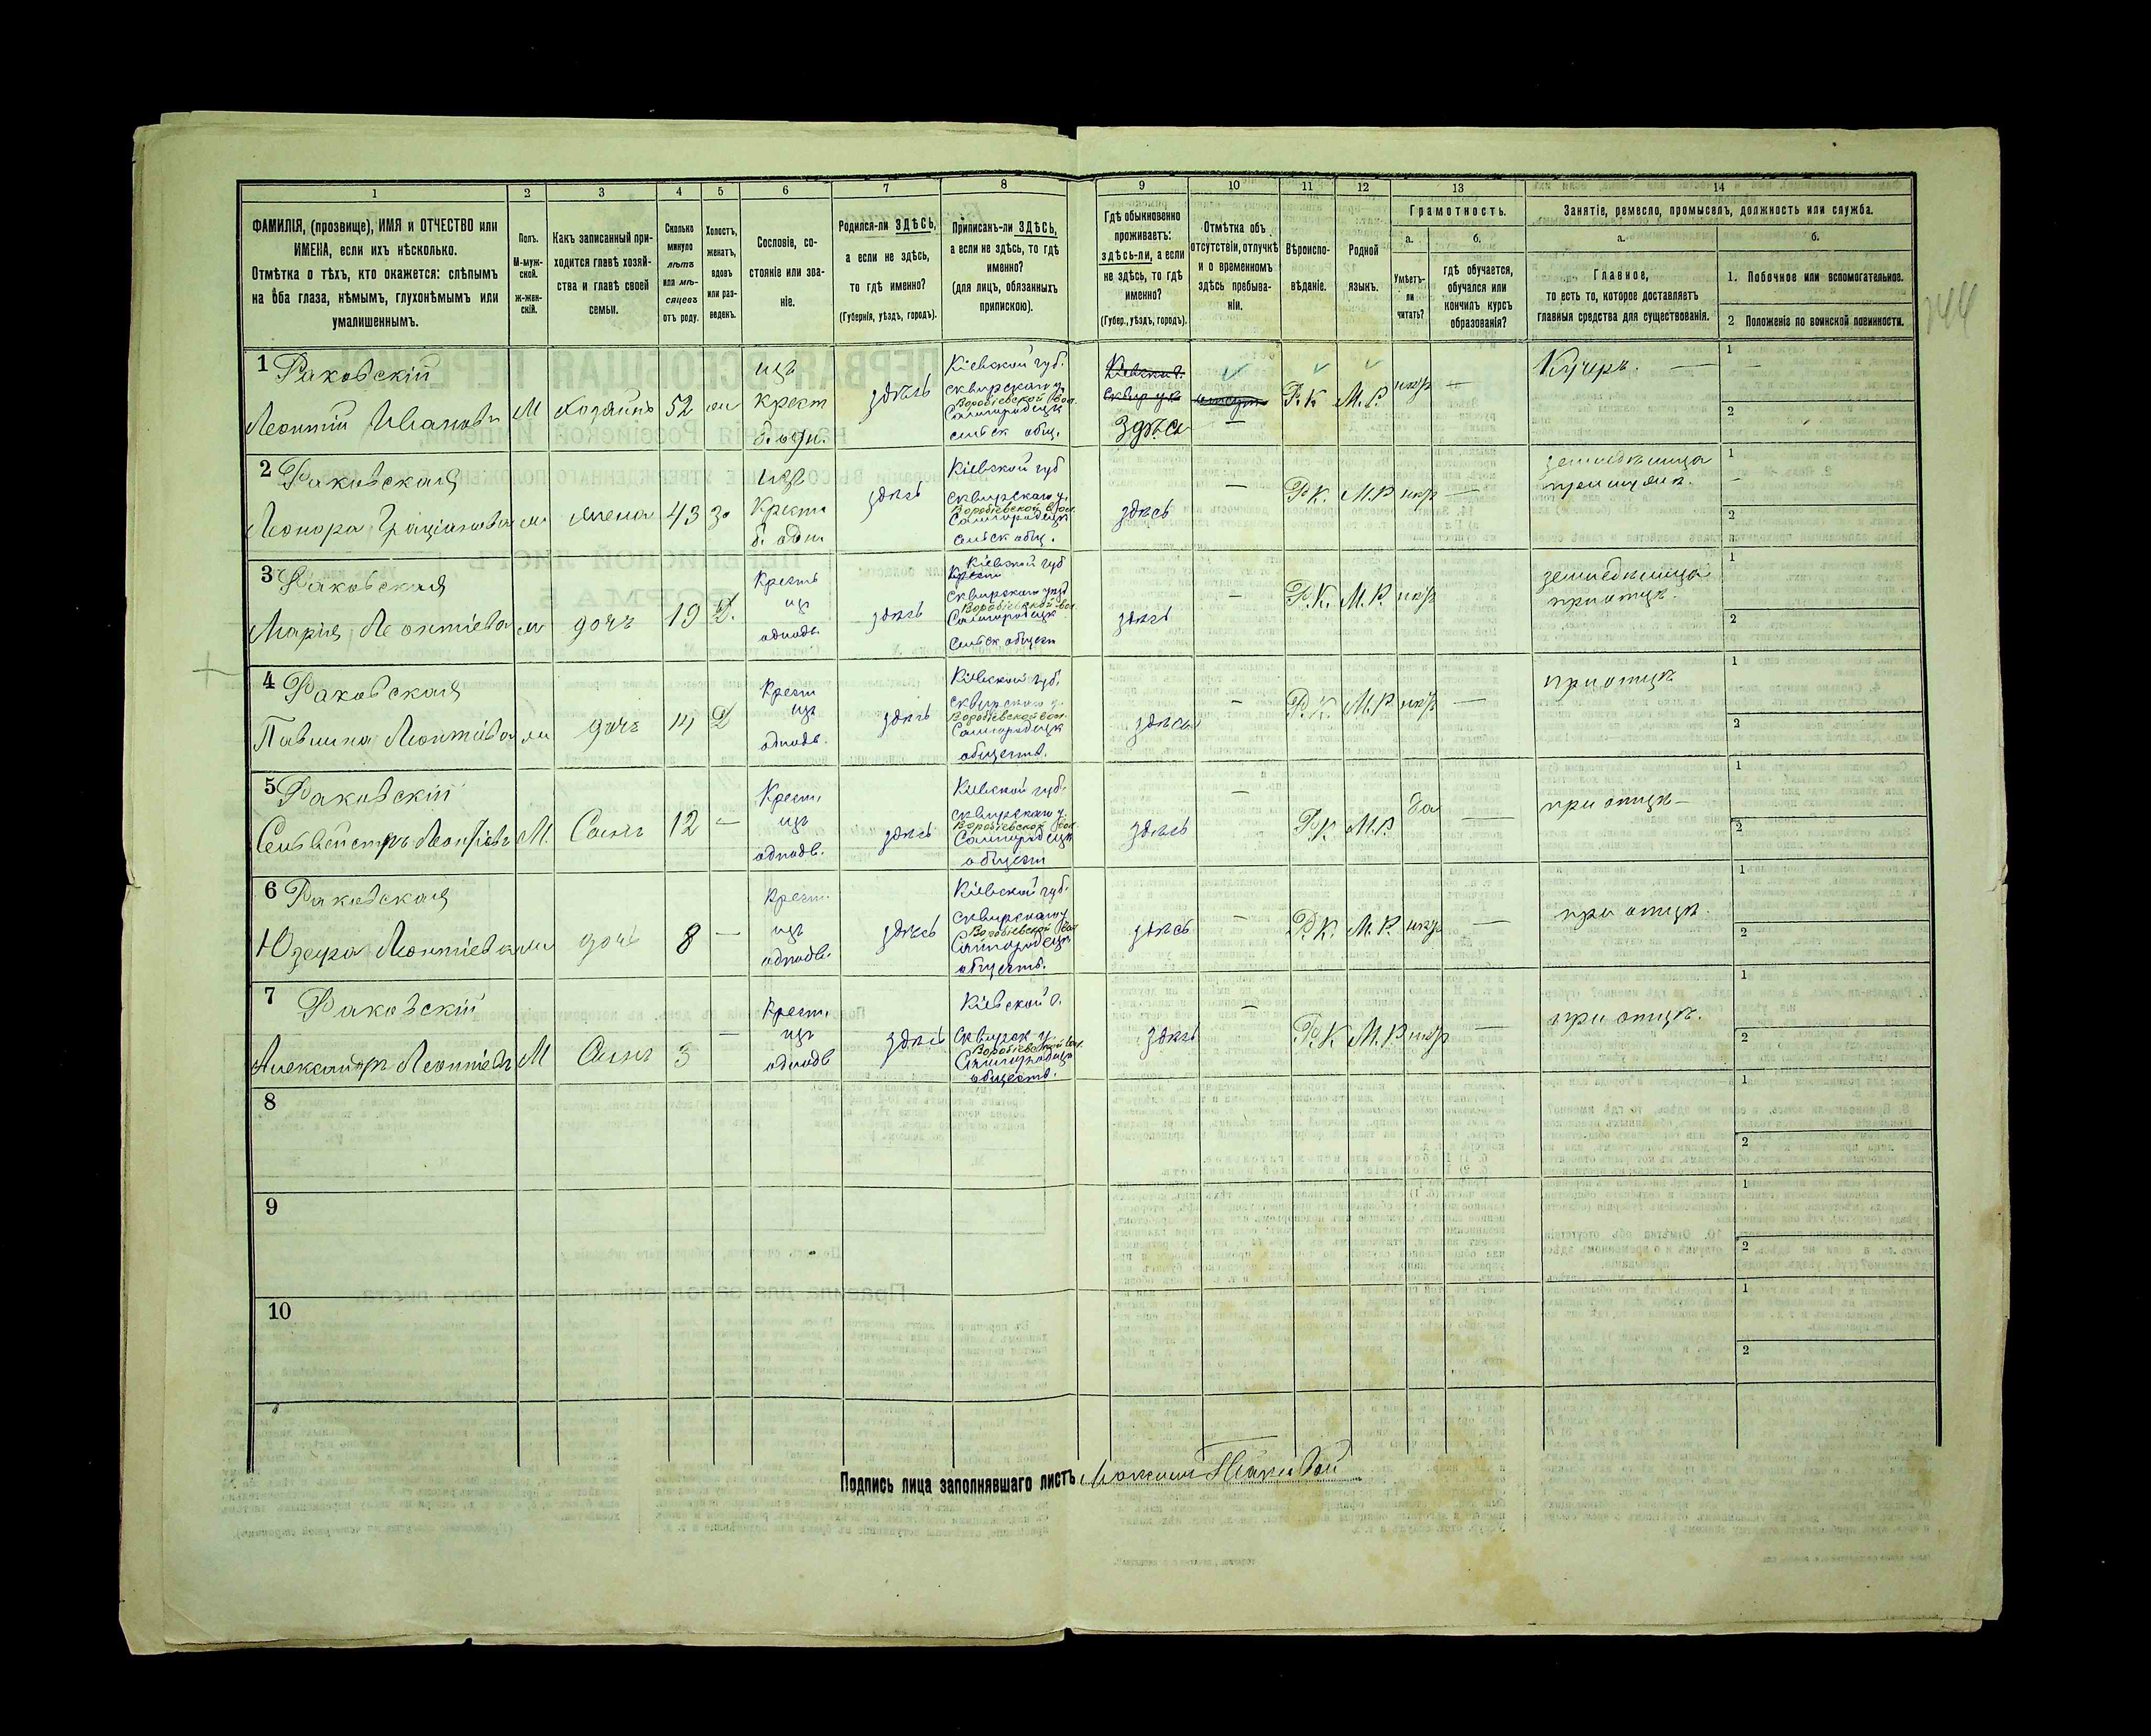 1 2 3 4 5 6 7 8 9 10 11 12 13 14
ФАМИЛІЯ, (прозвище), ИМЯ и ОТЧЕСТВО или
ИМЕНА, если ихъ нѣсколько.
Отмѣтка о тѣхъ, кто окажется: слѣпымъ
на оба глаза, нѣмымъ, глухонѣмымъ или
умалишеннымъ.
Полъ.
М-муж-
ской.
ж-жен-
скій.
Какъ записанный при-
ходится главѣ хозяй-
ства и главѣ своей
семьи.
Сколько
минуло
лѣтъ
или мѣ-
сяцевъ
отъ роду.
Холостъ,
женатъ,
вдовъ
или раз-
веденъ.
Сословіе, со-
стояніе или зва-
ніе.
Родился-ли ЗДѢСЬ,
а если не здѣсь,
то гдѣ именно?
(Губернія, уѣздъ, городъ).
Приписанъ-ли ЗДѢСЬ,
а если не здѣсь, то гдѣ
именно?
(для лицъ, обязанныхъ
припискою).
Гдѣ обыкновенно
проживаетъ:
здѣсь-ли, а если
не здѣсь, то гдѣ
именно?
(Губер., уѣздъ, городъ).
Отмѣтка объ
отсутствіи, отлучкѣ
и о временномъ
здѣсь пребыва-
ніи.
Вѣроиспо-
вѣданіе.
Родной
языкъ.
Грамотность.
а.
Умѣетъ-
ли
читать?
б.
гдѣ обучается,
обучался или
кончилъ курсъ
образованія?
Занятіе, ремесло, промыселъ, должность или служба.
а.
Главное,
то есть то, которое доставляетъ
главныя средства для существованія.
б.
1. Побочное или вспомогательное.
2 Положеніе по воинской повинности.
144
1 Раковскій
Леонтій Ивановъ
М
Хозяинъ
52
изъ
крест
б. одн.
здѣсь
Кіевской губ.
Сквирскаго у.
Воробіевской вол.
Самгородецк
сельск общ.
Здѣсь
—
Р.К.
М.Р.
нѣтъ
—
Кучеръ. —
1 —
2
2 Раковская
Леонора
жена
43
изъ
Крест
б. одн.
здѣсь
Кіевской губ
Сквирскаго у.
Воробіевской вол.
Самгородецк
сельск общ.
здѣсь
—
Р.К.
М.Р
нѣтъ
—
1 —
2
3 Раковская
Марія Леонтіева
дочь
19
Д.
Крестъ
изъ
однодв.
здѣсь
Кіевской губ
Сквирскаго уѣзд
Воробіевской вол.
Самгородецк
Сельск общест
здѣсь
—
Р.К.
М.Р.
нѣтъ
при отцѣ.
1
2
4 Раковская
Павлина Леонтіева
дочь
14
Д
Крест
изъ
однодв.
здѣсь
Кіевской губ.
Сквирскаго у.
Воробіевской вол.
Самгородецк
обществ.
здѣсь
—
Р.К.
М.Р
нѣтъ
—
при отцѣ
1
2
5 Раковскій
Сельвейстръ Леонтіевъ
М.
Сынъ
12
—
Крест.
изъ
однодв.
здѣсь
Кіевской губ.
Сквирскаго у.
Воробіевской вол.
Самгородецк
общест
здѣсь
—
Р.К.
М.Р.
Да
—
при отцѣ —
1
2
6 Раковская
Юзефа Леонтіева
дочь
8
—
Крест.
изъ
однодв.
здѣсь
Кіевской губ.
Сквирскаго у
Воробіевской вол
Самгородецк
обществ.
здѣсь
—
Р.К.
М.Р.
нѣтъ
—
при отцѣ.
1
2
7 Раковскій
Александръ Леонтіевъ
М
Сынъ
3
—
Крест.
изъ
однодв
здѣсь
Кіевской
Сквирск у
Воробіевской вол.
Самгородецк
обществ.
здѣсь
—
Р.К
М.Р
нѣтъ
—
при отцѣ.
1
2
8
1
2
9
1
2
10
1
2
Подпись лица заполнявшаго листъ